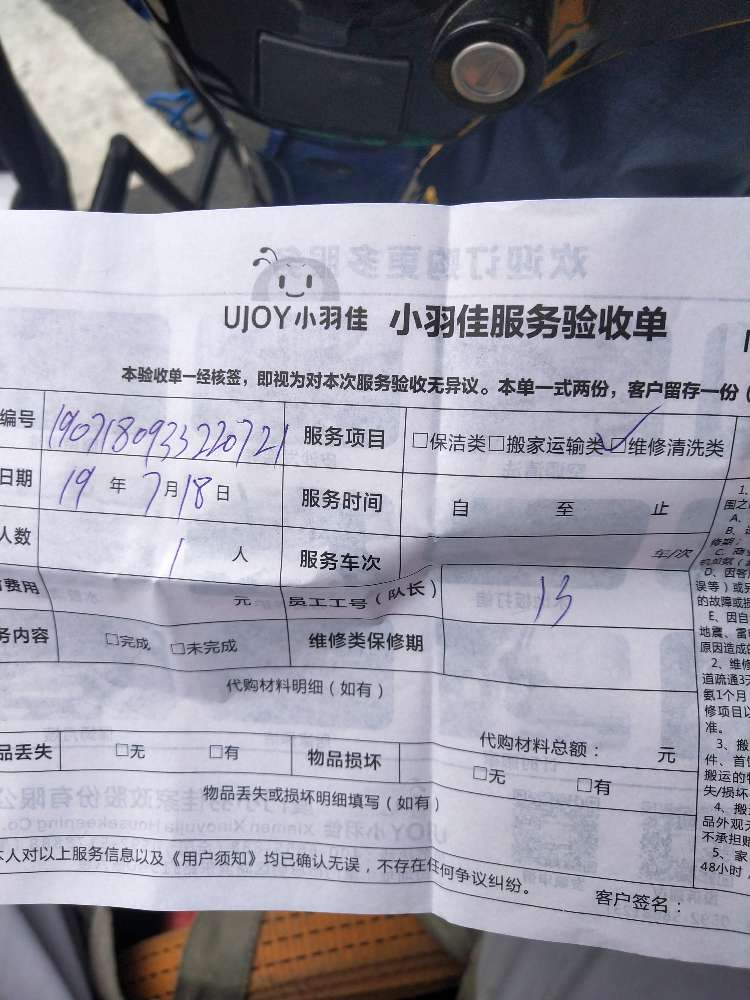 UJOY小羽佳 小羽佳服务验收单
本验收单一经核签，即视为对本次服务验收无异议。本单一式两份，客户留存一份（
编号 1907180933220721 服务项目 □保洁类□搬家运输类□维修清洗类
日期 19年7月18日 服务时间 自 至 止
人数 1人 服务车次 车/次
费用 元 员工工号（队长） 13
务内容 □完成 □未完成 维修类保修期
代购材料明细（如有）
代购材料总额： 元
品丢失 □无 □有 物品损坏 □无 □有
物品丢失或损坏明细填写（如有）
本人对以上服务信息以及《用户须知》均已确认无误，不存在任何争议纠纷。
客户签名：
1.
围之
A.
B.
修期；
C. 商
机加氨（
D、因客
误等）或
的故障或损
E、因自
地震、雷
原因造成的
2、维修
道疏通3天
氨1个月
修项目以
准。
3、搬
件、首饰
搬运的物
失/损坏
4、搬
品外观无
不承担赔
5、家
48小时